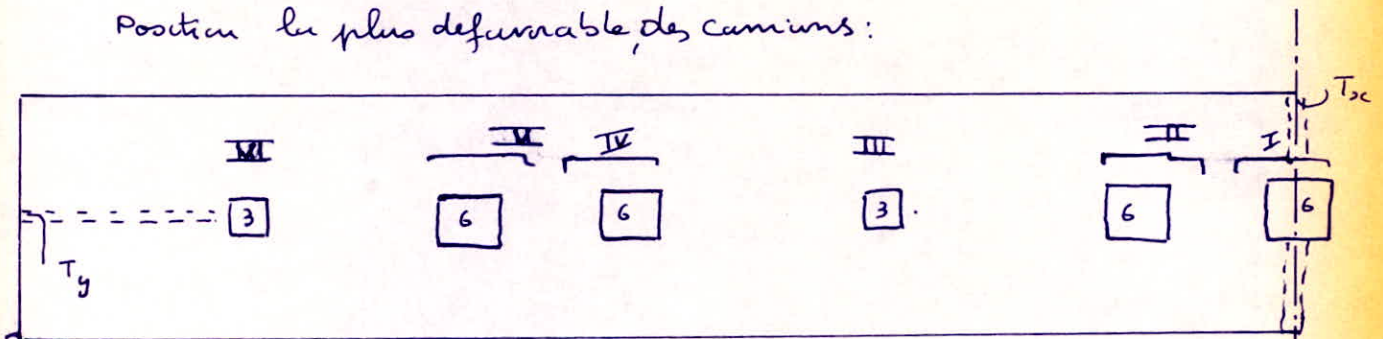 Position la plus defavorable, des camions:
Tx
VI V IV III II I
3 6 6 3 6 6
Ty